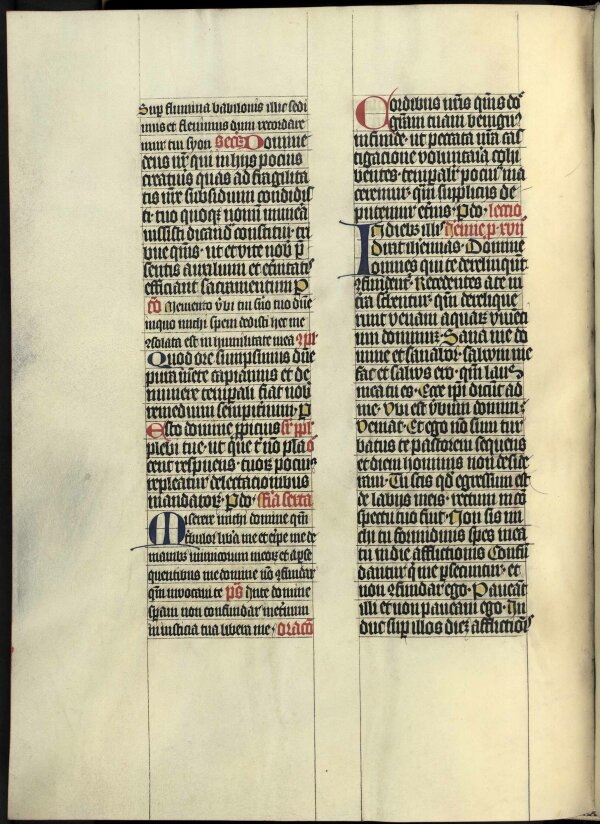 Sup flumina babilonis illic sedi
mus et flevimus dum recordare
mur tui syon Secr̄ Domine
deus nr̄ qui in hijs pocius
creaturis quas ad fragilita
tis nr̄e subsidium condidis
ti tuo quoqꝫ nomini munera
iussisti dicanda constitui tri
bue qīs ut et vite nob̄ p̄
sentis auxilium et et̄nitatis
efficiant sacramentum P
cō Memento v̄bi tui s̄uo tuo dn̄e
in quo michi spem dedisti hec me
ꝯsolata est in humilitate mea ꝯpl̄
Quod ore sumpsimus dn̄e
pura mente capiamus et de
munere temporali fiat nob̄
remedium sempiternum P
Esto domine ppicius sr̄ ppl̄m
plebi tue ut que t̄ nō pla
cent respuens tuoꝝ pocius
repleatur delectationibus
mandatoꝝ P do fīa sexta
Miserere michi domine qm̄
tribulor lib̄a me et eripe me de
manibus inimicorum meoꝝ et a pse
quentibus me domine nō ꝯfundar
qm̄ invocavi te ps̄ In te domine
speravi non confundar in et̄num
in iusticia tua libera me Oracō
Cordibus nr̄is qs̄ dn̄e
gr̄am tuam benignꝰ
infunde ut peccata nr̄a cas
tigacione voluntaria cohi
bentes temporalit̄ pocius ma
ceremur qm̄ suppliciis de
putemur et̄nis P do lectio
In diebꝫ illis Jeremie p xvij
Dixit jheremias Domine
omnes qui te derelinqūt
ꝯfundent̄ Recedentes a te in
terra scribentur qm̄ derelique
runt venam aquaꝝ viventi
um dominum Sana me do
mine et sanabor salvum me
fac et salvus ero qm̄ laus
mea tu es Ecce ip̄i dicūt ad
me Ubi est v̄bum domini
Veniat Et ego nō sum tur
batus te pastorem sequens
et diem hominis non deside
ravi Tu scis qd̄ egressum est
de labijs meis rectum in cō
spectu tuo fuit Non sis mi
chi tu formidini spes mea
tu in die afflictionis Confū
dantur qͥ me psecuntur et
non ꝯfundar ego Paveāt
illi et non paveam ego In
duc sup illos diem afflictiōis